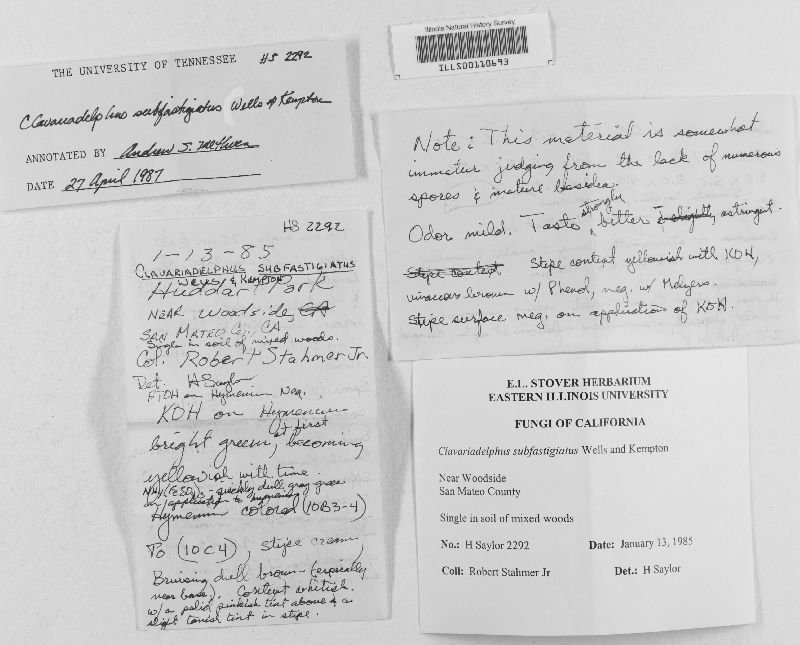 THE UNIVERSITY OF TENNESSEE HS 2292
Clavariadelphus subfastigiatus Wells & Kempton
ANNOTATED BY Andrew S. Methven
DATE 27 April 1987
Illinois Natural History Survey
ILLS00110693
Note: This material is somewhat
immature judging from the lack of numerous
spores & mature basidia.
Odor mild. Taste strongly bitter & slightly astringent.
Stipe context Stipe context yellowish with KOH,
vinaceous brown w/ Phenol, neg. w/ Melzers.
Stipe surface neg. on application of KOH.
HS 2292
1-13-85
CLAVARIADELPHUS SUBFASTIGIATUS
WELLS & KEMPTON
Huddart Park
NEAR Woodside, CA
SAN MATEO Co., CA
Single in soil of mixed woods.
Col. Robert Stahmer Jr.
Det. H Saylor
ETOH on Hymenium Neg.
KOH on Hymenium
bright green, at first becoming
yellowish with time.
quickly dull gray green
w/ application to hymenium
Hymenium colored (10B3-4)
To (10C4), stipe cream,
Bruising dull brown (especially
near base). Context whitish.
w/ a palid pinkish tint above & a
slight tanish tint in stipe.
E.L. STOVER HERBARIUM
EASTERN ILLINOIS UNIVERSITY
FUNGI OF CALIFORNIA
Clavariadelphus subfastigiatus Wells and Kempton
Near Woodside
San Mateo County
Single in soil of mixed woods
No.: H Saylor 2292 Date: January 13, 1985
Coll: Robert Stahmer Jr Det.: H Saylor